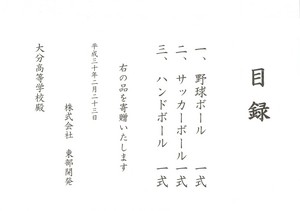 目録
一、野球ボール　一式
二、サッカーボール一式
三、ハンドボール　一式
右の品を寄贈いたします
平成三十年二月二十三日
株式会社　東部開発
大分高等学校殿